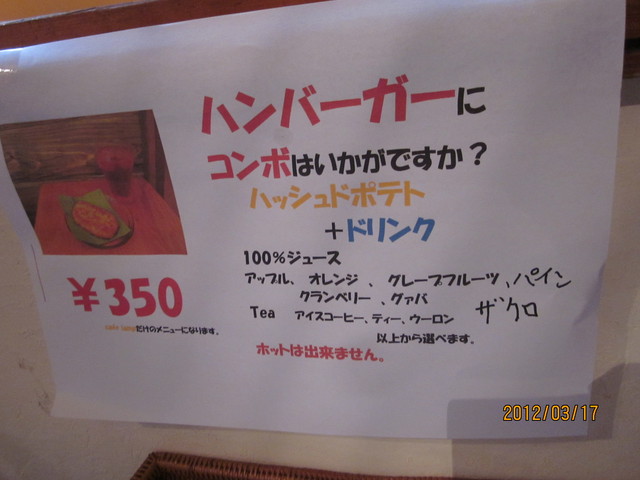 ハンバーガーに
コンボはいかがですか？
ハッシュドポテト
＋ドリンク
100％ジュース
アップル、オレンジ 、グレープフルーツ、パイン
クランベリー 、グァバ
ザクロ
Tea アイスコーヒー、ティー、ウーロン
以上から選べます。
ホットは出来ません。
￥350
だけのメニューになります。
2012/03/17